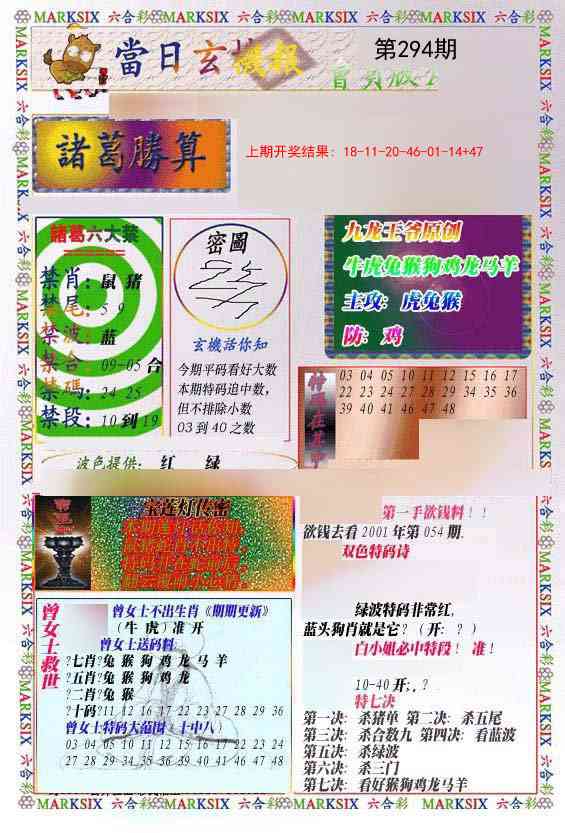 MARKSIX 六合彩 MARKSIX 六合彩 MARKSIX 六合彩 MARKSIX 六合彩
當日玄機報
第294期
諸葛勝算
上期开奖结果：18-11-20-46-01-14+47
諸葛六大禁
禁肖：鼠 猪
禁尾：5 9
禁波：蓝
禁合：09-05 合
禁碼：24 25
禁段：10 到 19
密圖
玄機活你知
今期平码看好大数
本期特码追中数，
但不排除小数
03 到 40 之数
九龙王爷原创
牛虎兔猴狗鸡龙马羊
主攻：虎兔猴
防：鸡
03 04 05 10 11 12 15 16 17
22 23 24 27 28 29 34 35 36
39 40 41 46 47 48
波色提供：红 绿
宝莲灯传密
曾女士救世
曾女士不出生肖《期期更新》
（牛 虎）准 开
曾女士送码料：
?七肖?兔 猴 狗 鸡 龙 马 羊
?五肖?兔 猴 狗 鸡 龙
?二肖?兔 猴
?十码?11 12 16 17 22 23 27 28 29 36
曾女士特码大范围：十中八）
03 04 05 10 11 12 15 16 17 22 23 24
27 28 29 34 35 36 39 40 41 46 47 48
第一手欲钱料！！
欲钱去看 2001 年第 054 期.
双色特码诗
绿波特码非常红,
蓝头狗肖就是它？（开：？）
白小姐必中特段！ 准！
10-40 开:, ?
特七决
第一决：杀猪单 第二决：杀五尾
第三决：杀合数九 第四决：看蓝波
第五决：杀绿波
第六决：杀三门
第七决：看好猴狗鸡龙马羊
MARKSIX 六合彩 MARKSIX 六合彩 MARKSIX 六合彩 MARKSIX